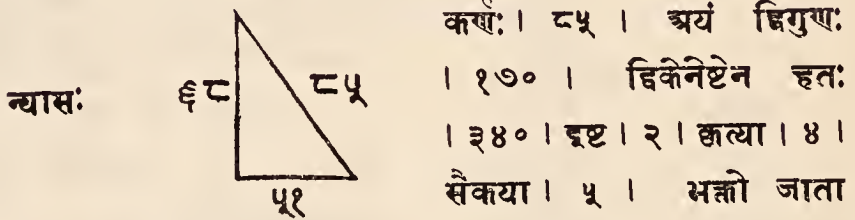 न्यासः
६८
८५
५१
कर्णः । ८५ । अयं द्विगुणः
। १७० । द्विकेनेष्टेन हतः
। ३४० । इष्ट । २ । कृत्या । ४ ।
सैकया । ५ । भक्तो जाता